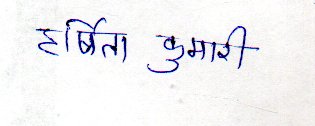 हर्षिता कुमारी